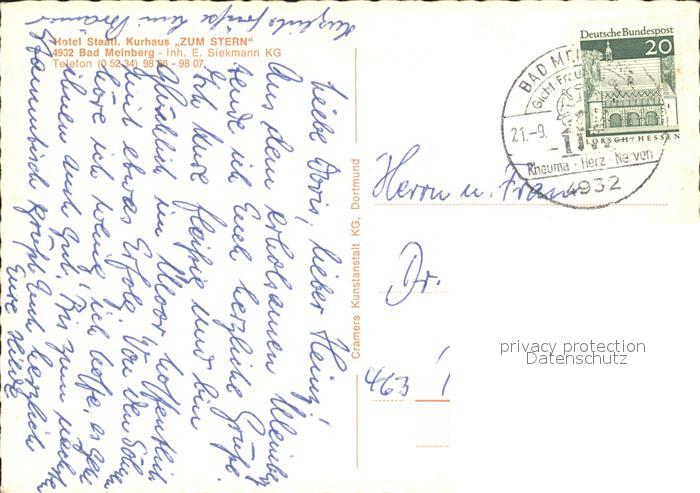 Hotel Staatl. Kurhaus „ZUM STERN"
4932 Bad Meinberg - Inh. E. Siekmann KG
Telefon (0 52 34) 98 - 98 07
Liebe Doris, lieber Heinz!
Aus dem erholsamen Meinberg
sende ich Euch herzliche Grüße.
Ich kure fleißig und bin
glücklich im Moor, hoffentlich
mit etwas Erfolg. Von den Söhnen
höre ich wenig, ich hoffe, es geht
ihnen auch gut. Bis zum nächsten
Stammtisch grüßt Euch herzlich
Eure
Herzliche Grüße
Cramers Kunstanstalt KG, Dortmund
Deutsche Bundespost
20
LORSCH / HESSEN
BAD
Gicht Frau
21.-9.
Rheuma · Herz · Nerven
4932
Herrn u. Frau
Dr.
463
privacy protection
Datenschutz